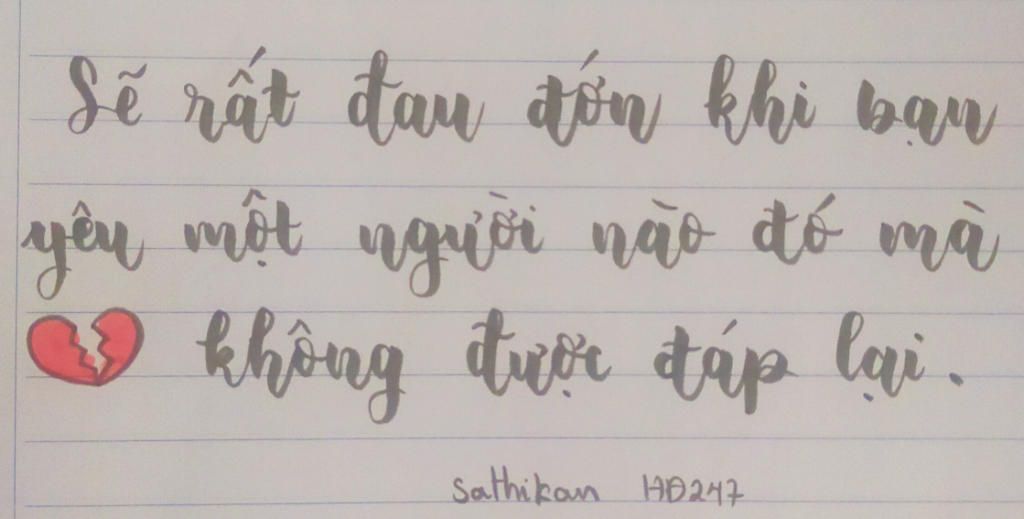 Sẽ rất đau đớn khi bạn
yêu một người nào đó mà
không được đáp lại.
Sathikan HĐ247